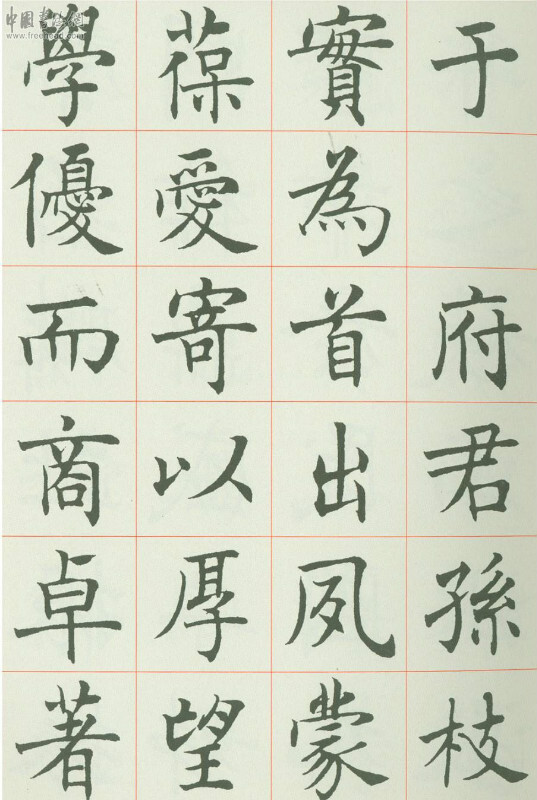 中國書法網
www.freehead.com
于 府君孫枝
實為首出夙蒙
葆愛寄以厚望
學優而商卓著